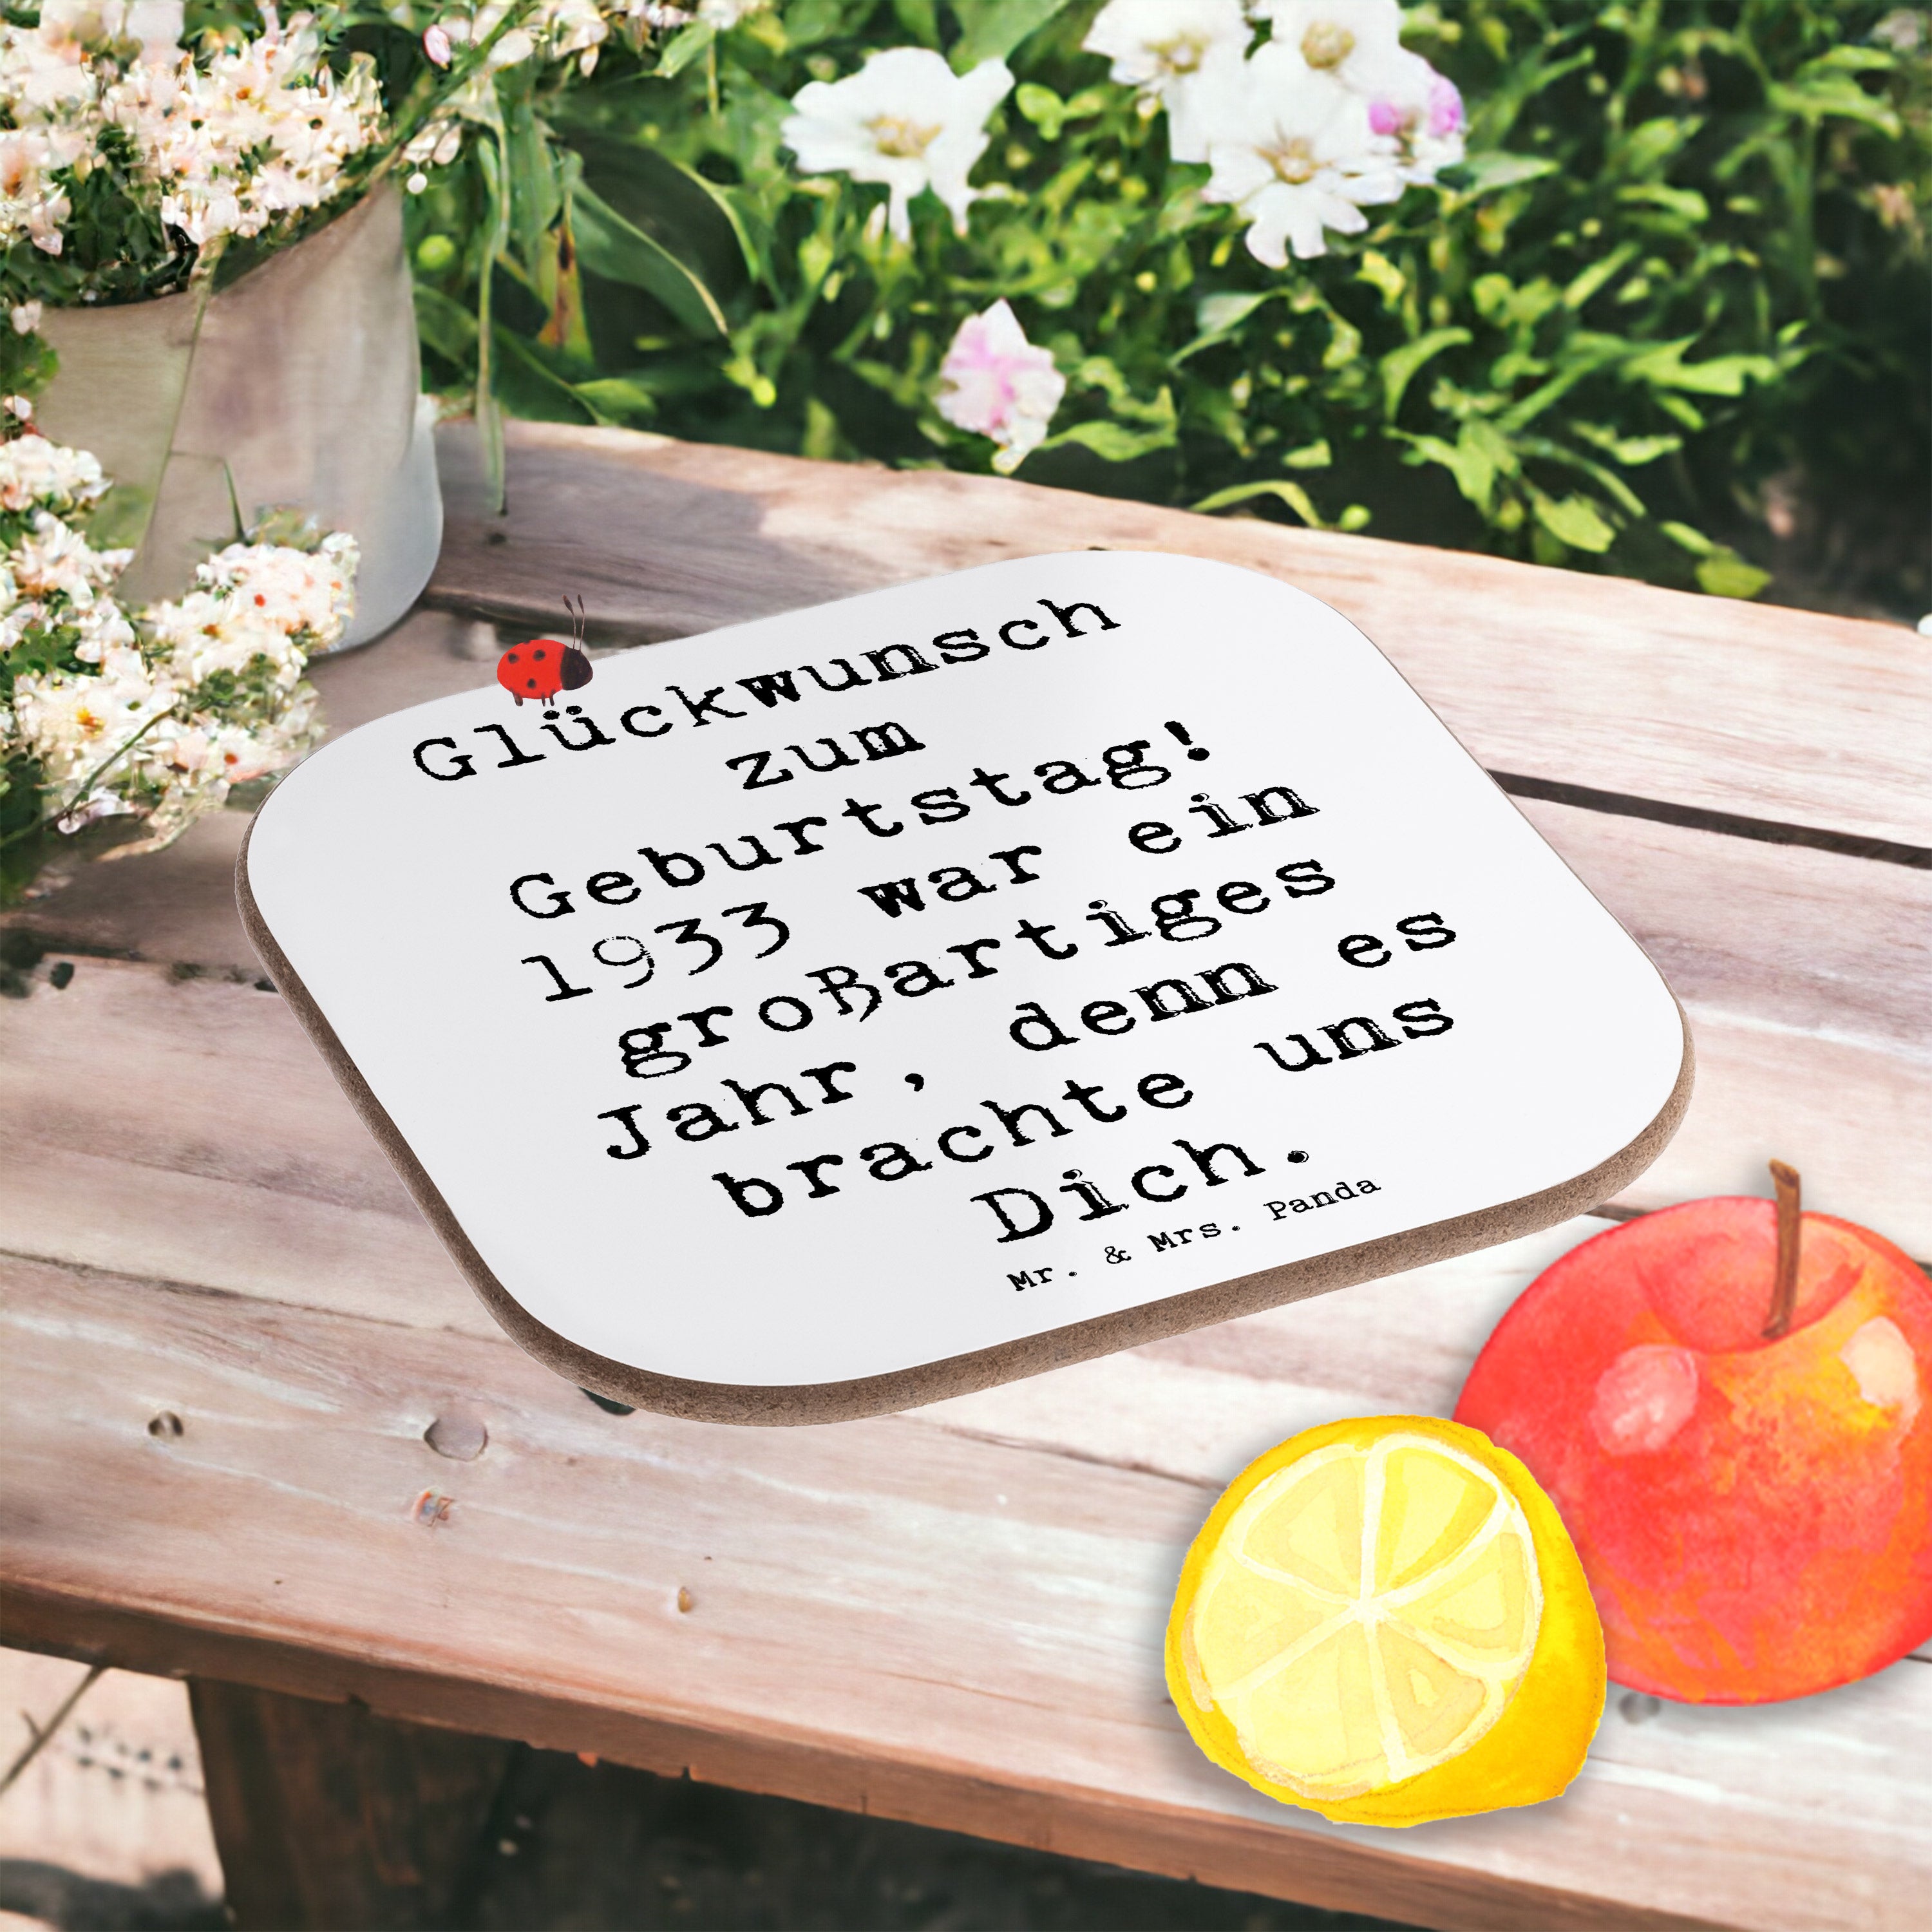 Glückwunsch
zum
Geburtstag!
1933 war ein
großartiges
Jahr, denn es
brachte uns
Dich.
Mr. & Mrs. Panda